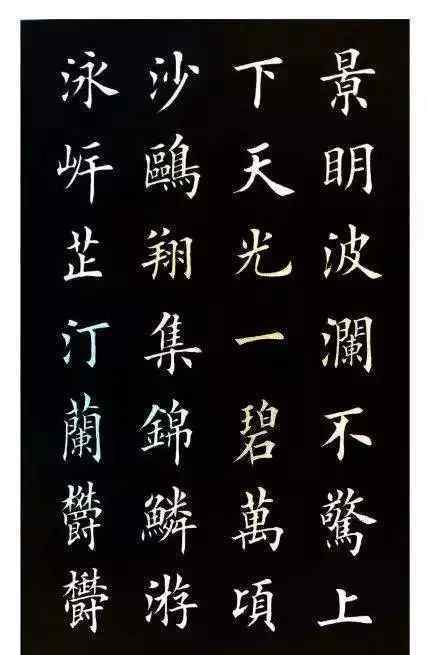 景明波瀾不驚上
下天光一碧萬頃
沙鷗翔集錦鱗游
泳岸芷汀蘭鬱鬱